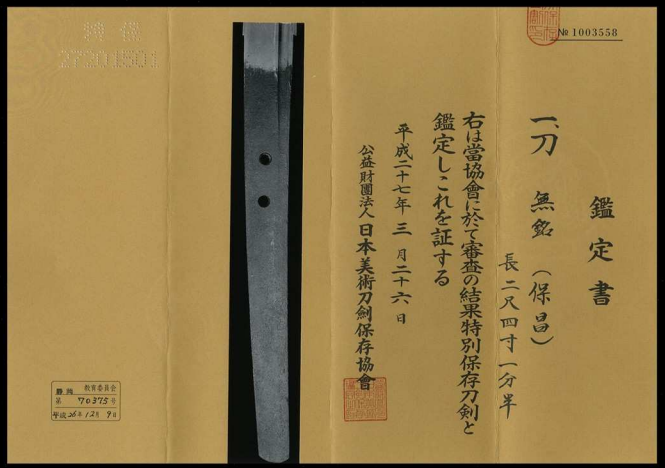 № 1003558
鑑定書
一、刀 無銘（保昌）
長二尺四寸一分半
右は當協會に於て審査の結果特別保存刀剣と
鑑定しこれを証する
平成二十七年三月二十六日
公益財團法人 日本美術刀劍保存協會
27201501
静岡 教育委員会
第 70375 号
平成 26年 12月 9日